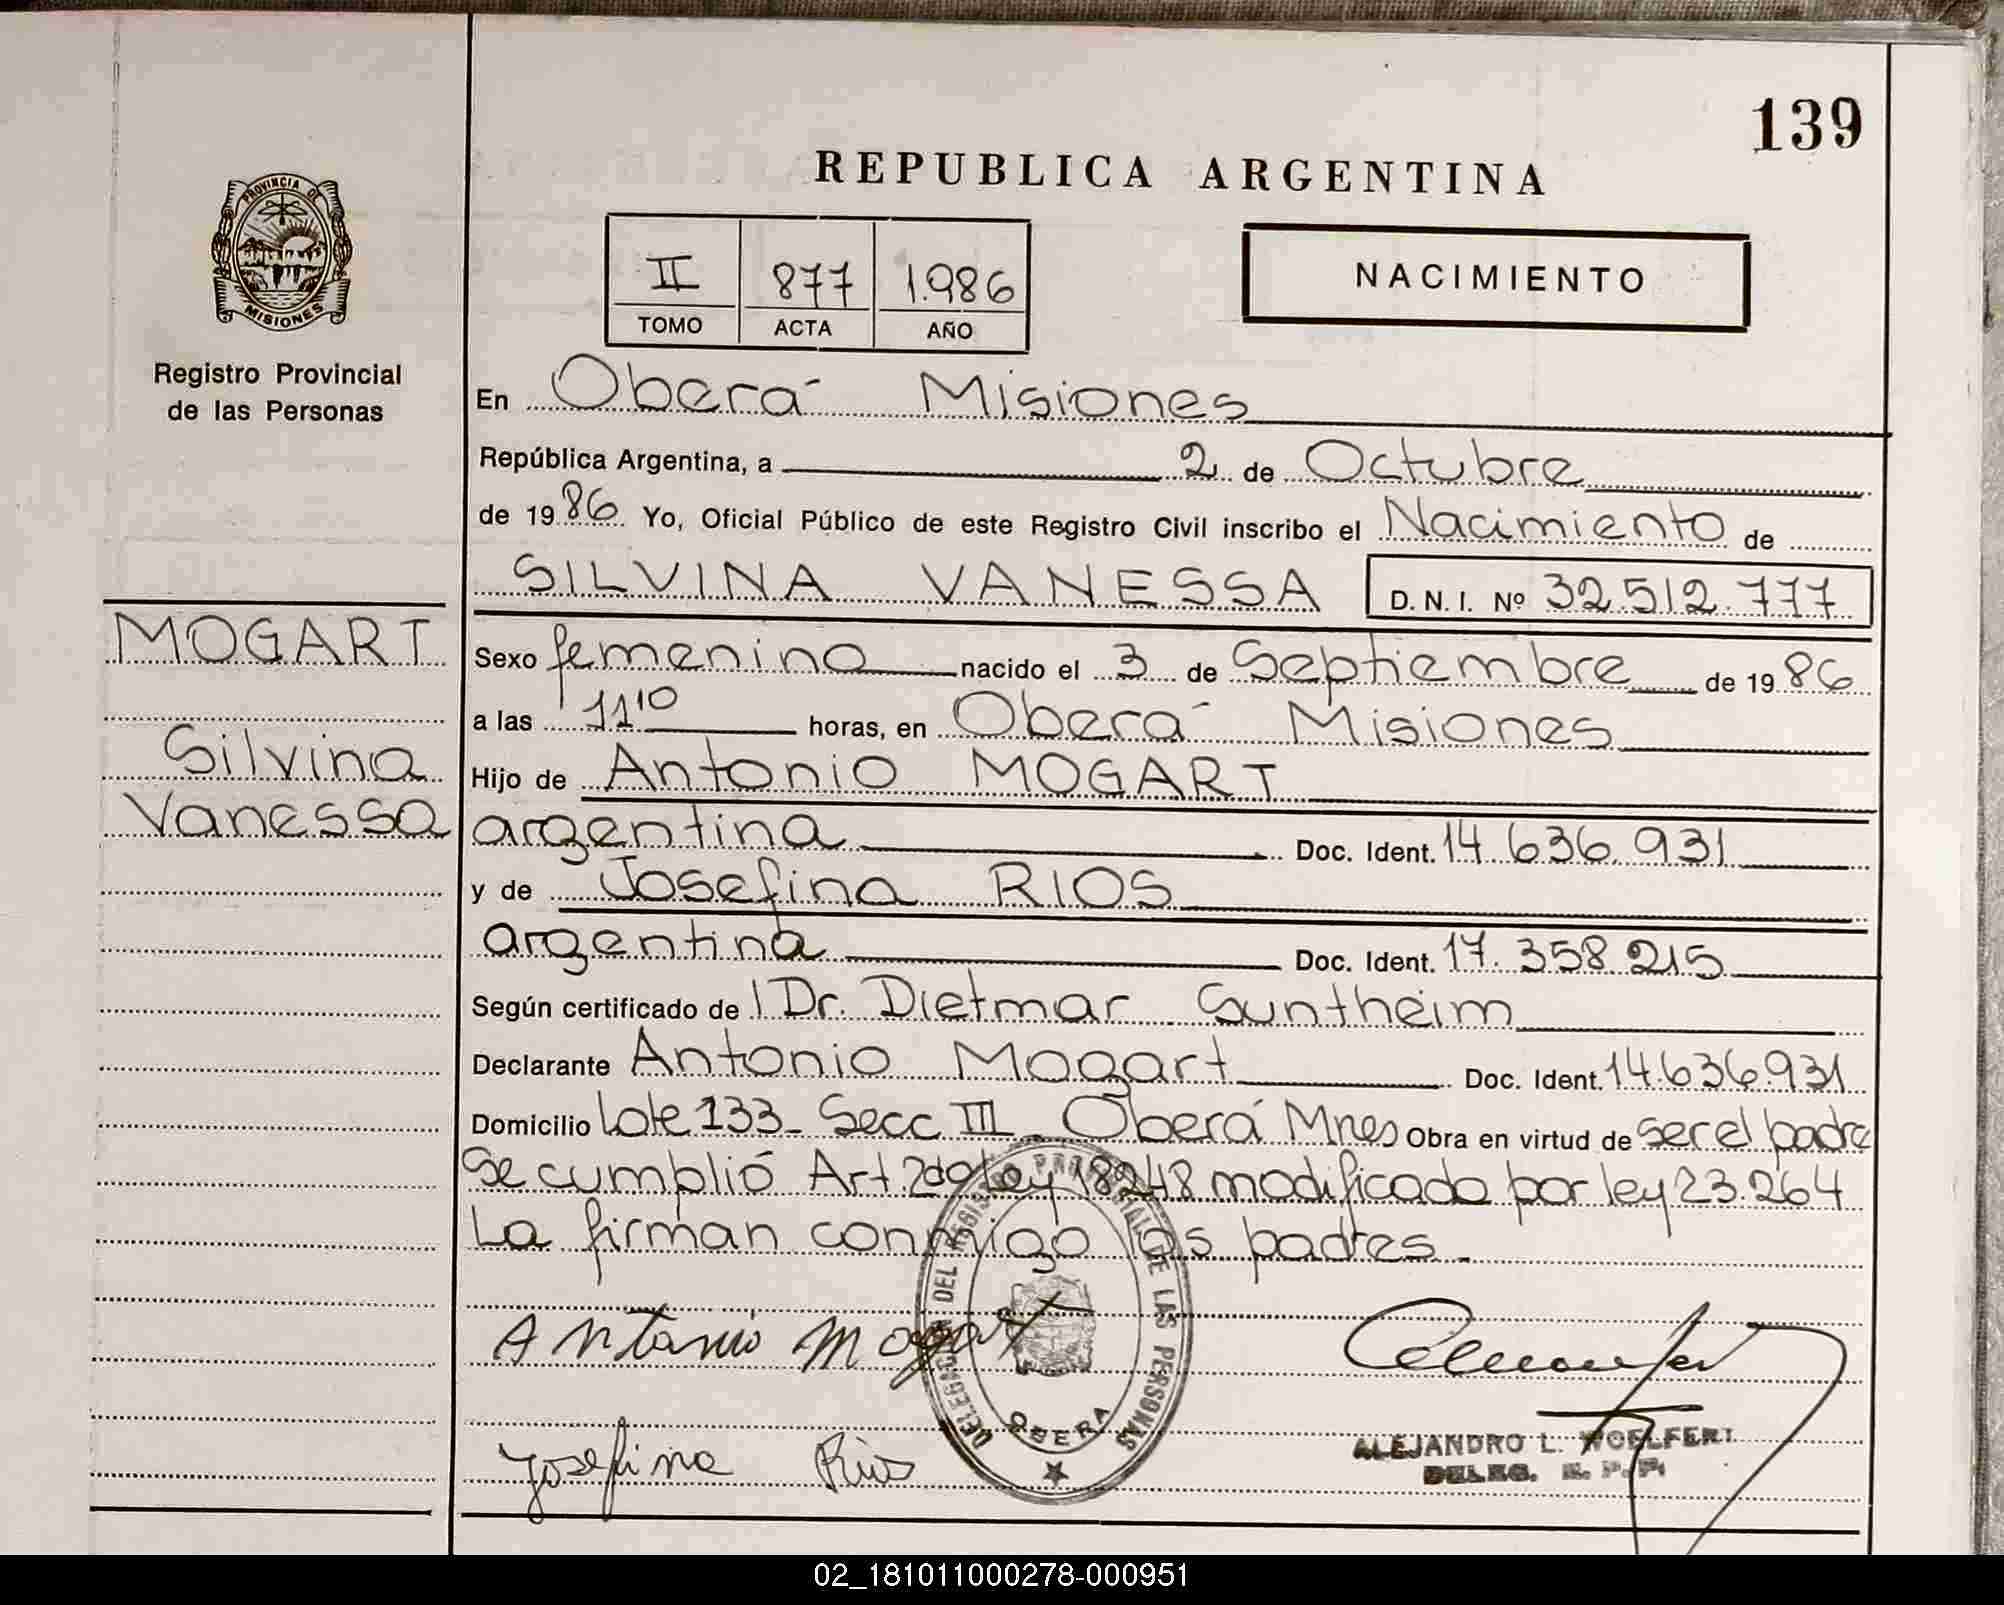 139
REPUBLICA ARGENTINA
PROVINCIA DE
MISIONES
Registro Provincial
de las Personas
II 877 1.986
TOMO ACTA AÑO
NACIMIENTO
En Oberá Misiones
República Argentina, a 2 de Octubre
de 1986 Yo, Oficial Público de este Registro Civil inscribo el Nacimiento de
SILVINA VANESSA D. N. I. Nº 32.512.777
MOGART
Silvina
Vanessa
Sexo femenino nacido el 3 de Septiembre de 1986
a las 11 10 horas, en Oberá Misiones
Hijo de Antonio MOGART
argentina Doc. Ident. 14.636.931
y de Josefina RIOS
argentina Doc. Ident. 17.358.215
Según certificado de l Dr. Dietmar Suntheim
Declarante Antonio Mogart Doc. Ident. 14.636.931
Domicilio Lote 133- Secc III Oberá Mnes Obra en virtud de ser el padre
Se cumplió Art 2do ley 18248 modificado por ley 23.264
La firman conmigo los padres.-
Antonio Mogart
Josefina Rios
DELEGACION DEL REGISTRO PROVINCIAL DE LAS PERSONAS
OBERA
ALEJANDRO L. WOELFERT
DELEG. R. P. P.
02_181011000278-000951